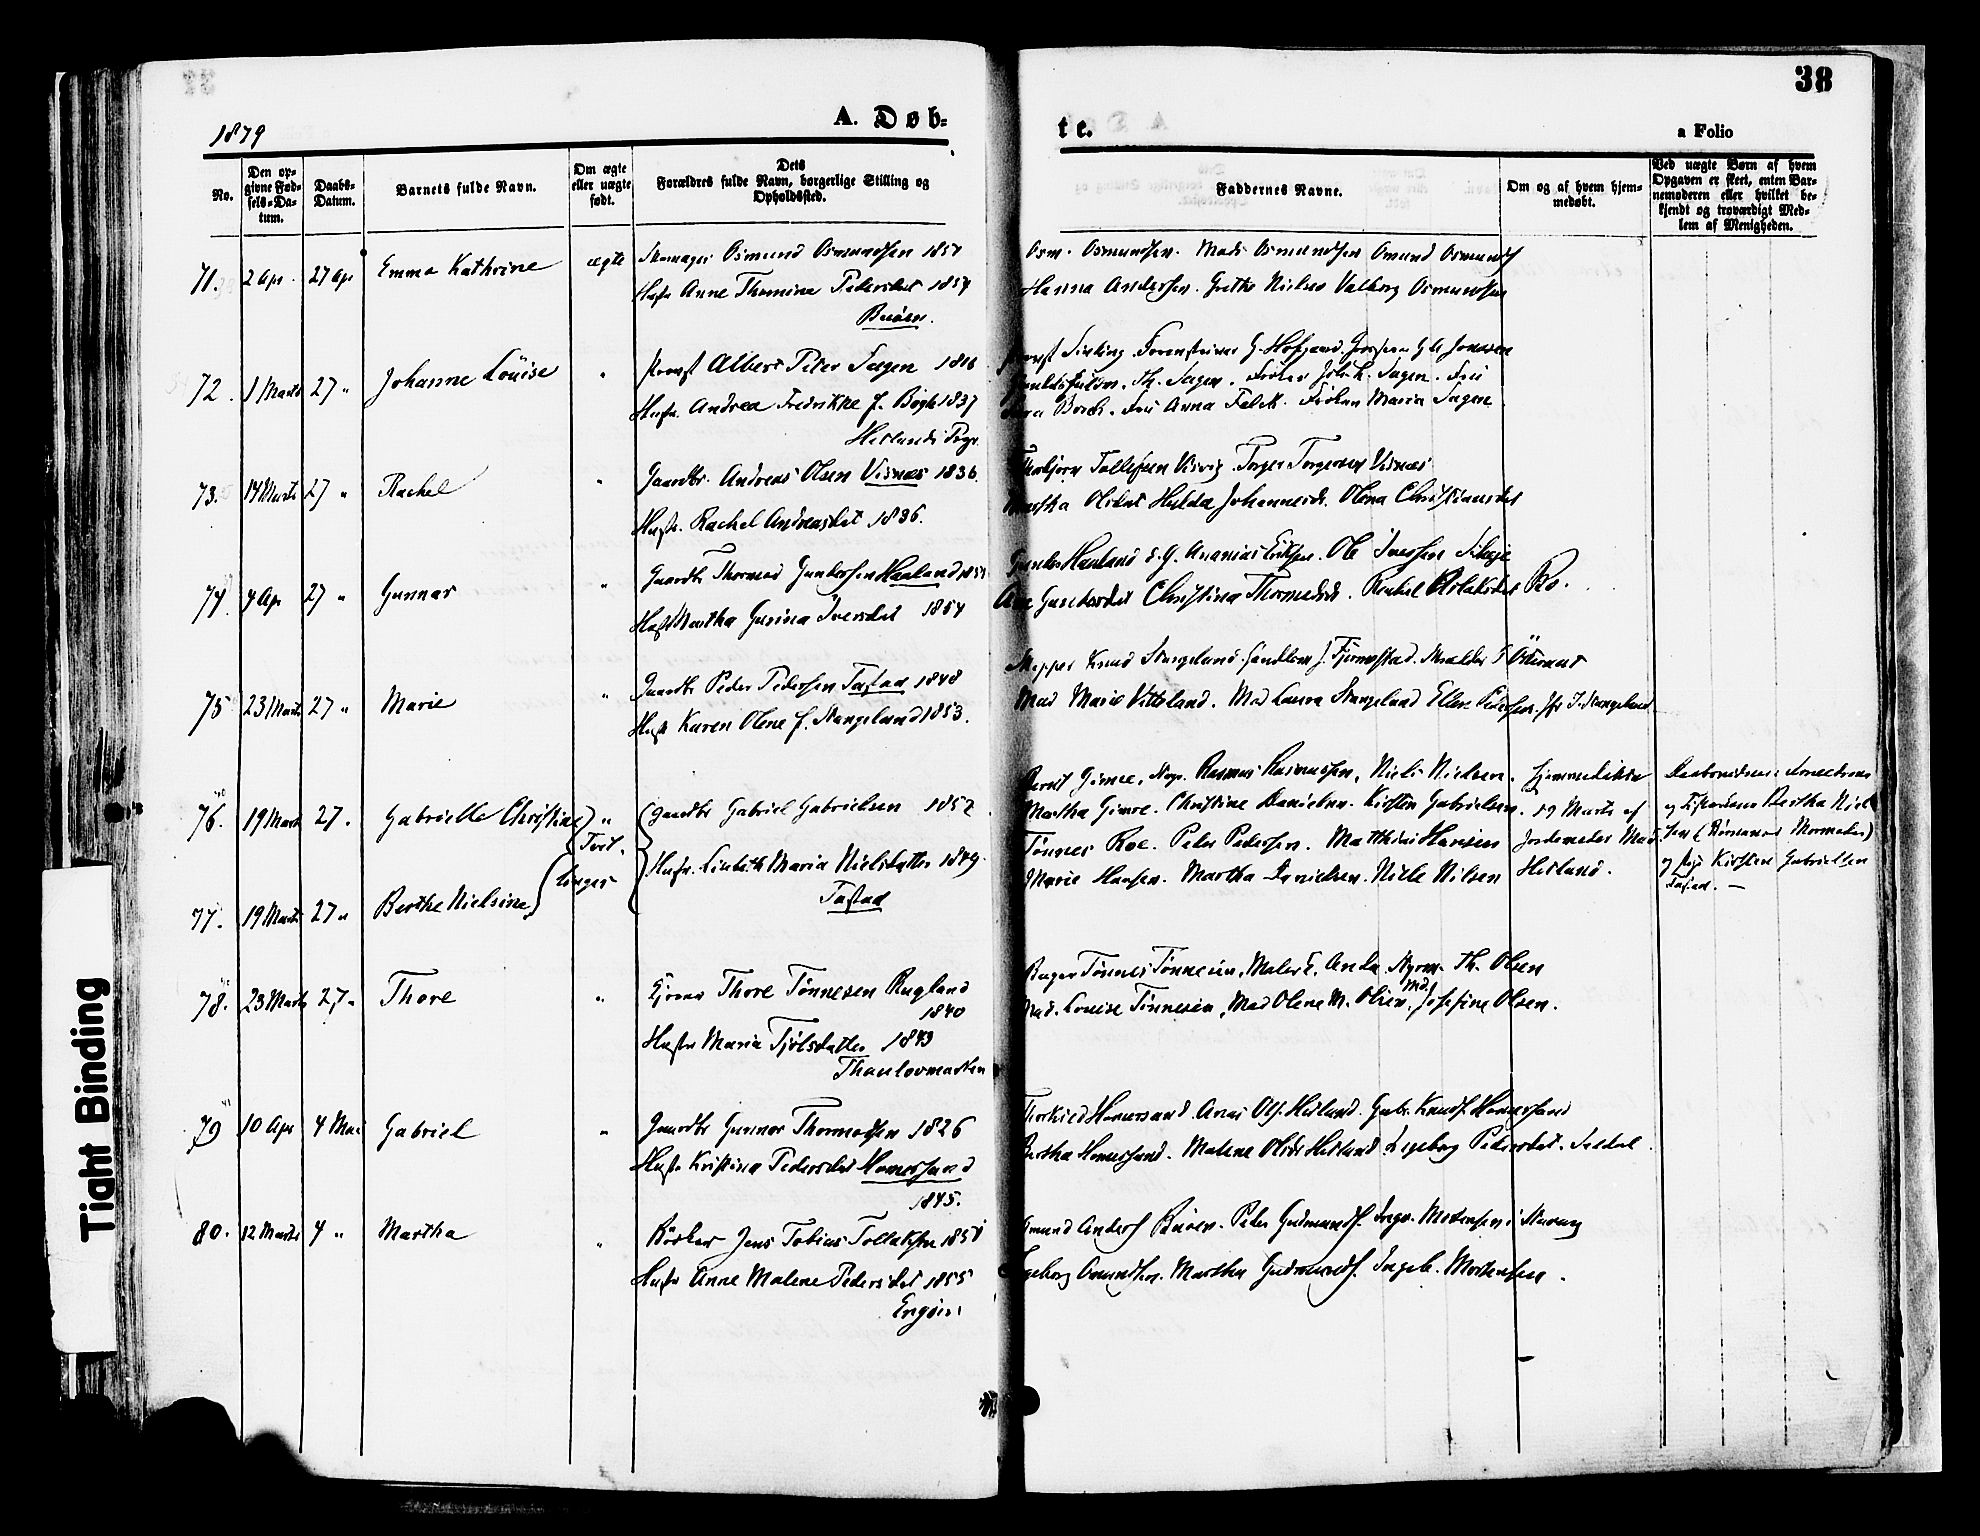 38
1879
A. Døb-
te.
a Folio
No.
Den op-
givne Fød-
sels-Da-
tum.
Daabs-
Datum.
Barnets fulde Navn.
Om ægte
eller uægte
født.
Dets
Forældres fulde Navn, borgerlige Stilling og
Opholdssted.
Faddernes Navne.
Om og af hvem hjem-
medøbt.
Ved uægte Børn af hvem
Opgaven er skeet, enten Bar-
nemoderen eller hvilket be-
kjendt og troværdigt Med-
lem af Menigheden.
71. 2 Apr. 27 Ap Emma Kathrine ægte Skomager Osmund Osmundsen 1851
Hustr Anne Thomine Pedersdat 1854
Buøen.
Osm. Osmundsen. Mads Osmundsen Omund Osmunds
Hanna Andersen. Grethe Nielsen Valborg Osmundsen
72. 1 Marts 27 " Johanne Louise " Provst Albert Peter Sagen 1816
Hustr. Andrea Fredrikke f. Bøgh 1837
Hetlands Prgr.
Th. Sagen. Frøken Joh. L. Sagen. Fru
Borch. Fru Anna Falck. Frøken Maria Sagen
73. 14 Marts 27 " Rachel " Gaardbr. Andreas Olsen Visnæs 1836
Hustr. Rachel Andreasdat 1836.
Thorbjørn Tollefsen Visvig. Torger Torgersen Visnæs
Martha Olsdat Hulda Johannesd. Olena Christiansdat
74. 4 Ap 27 " Gunnar " Gaardbr Thormod Gundersen Haaland
Hustr Martha Gurina Iversdat 1854
Gunder Haaland s. G. Ananias Eriksen. Ole Iversen
Ane Gundersdat Christina Thormodsd. Rachel Aslaksdat Ro.
75 23 Marts 27 " Marie " Gaardbr Peder Pedersen Tastad 1848
Hustr Karen Olene f. Stangeland 1853.
Skipper Knud Stangeland. Handlsm J. Fjermestad.
Mad Marie Vetteland. Mad Laura Stangeland Ellen Pedersen. Jfr I. Stangeland
76. 19 Marts 27. Gabrielle Christine " Gaardbr Gabriel Gabrielsen 1852
Tvil-
linger
Hustr. Lisbeth Maria Nielsdatter 1849.
Tastad
77. 19 Marts 27 " Berthe Nielsine
Bernt Gimre, Rasmus Rasmussen, Niels Nielsen.
Martha Gimre. Christine Danielsen. Kirsten Gabrielsen.
Tønnes Roe. Peter Pedersen. Matthias Hansen
Marie Hansen. Martha Danielsen. Niels Nilsen
Hjemmedøbte
19 Marts af
Jordemoder Mad.
Hetland.
Bertha Niel
sen (Børnenes Mormoder)
og Pige Kirsten Gabrielsen
Tastad. —
78. 23 Marts 27 " Thore " Thore Tønnesen Rugland
1840
Hustr Maria Tjølsdatter 1843
Thoulovmarken
Tønnes Tønnesen, Maler E. Anda. Styrm. Th. Olsen
Mad. Louise Tønnesen, Mad Olene M. Olsen, Md. Josefine Olsen.
79 10 Apr 4 Mai Gabriel " Gaardbr Gunnar Thormodsen 1826
Hustr Kristina Pedersdat Homersand
1845.
Thorkild Homersand. Anas Ols. Hetland. Gabr. Knuds. Homersand
Bertha Homersand. Malene Olsdr Hetland Ingeborg Pedersdat.
80. 12 Marts 4 " Martha " Bødker Jens Tobias Tollaksen 1851
Hustr Anne Malene Pedersdat 1855
Engøen
Omund Anders Buøen. Peder Gudmunds. Mortensen i Stavang
Ingeborg Omundsen. Martha Gudmunds. Ingeb. Mortensen.
Tight Binding